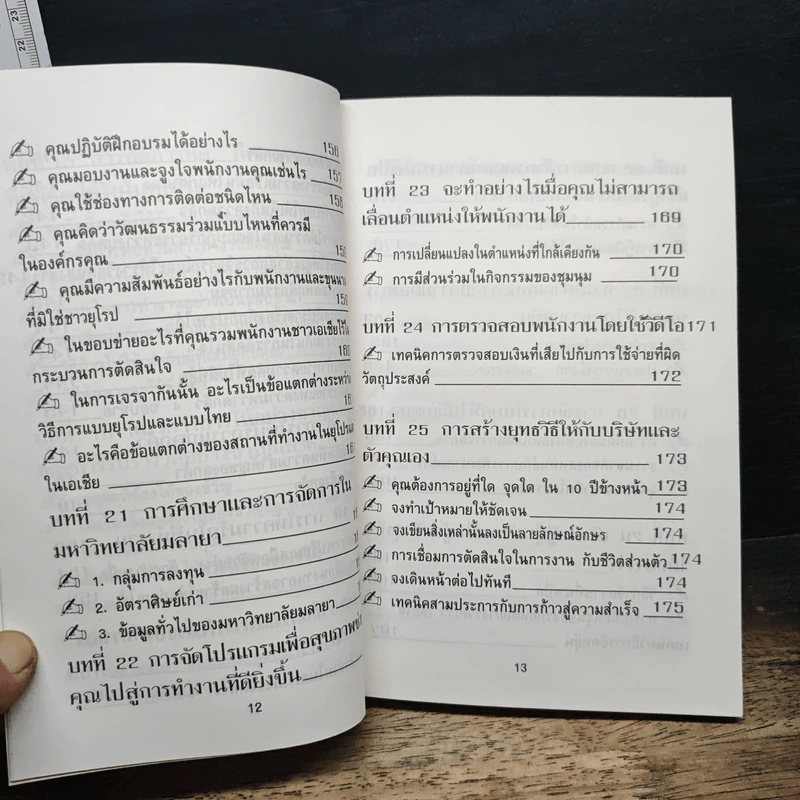 23
22
คุณปฏิบัติฝึกอบรมได้อย่างไร 156
คุณมอบงานและจูงใจพนักงานคุณเช่นไร 157
คุณใช้ช่องทางการติดต่อชนิดไหน 158
คุณคิดว่าวัฒนธรรมร่วมแบบไหนที่ควรมี
ในองค์กรคุณ
คุณมีความสัมพันธ์อย่างไรกับพนักงานและขุนนาง
ที่มิใช่ชาวยุโรป
ในขอบข่ายอะไรที่คุณรวมพนักงานชาวเอเชียไว้ใน
กระบวนการตัดสินใจ
ในการเจรจากันนั้น อะไรเป็นข้อแตกต่างระหว่าง
วิธีการแบบยุโรปและแบบไทย
อะไรคือข้อแตกต่างของสถานที่ทำงานในยุโรปและ
ในเอเชีย
บทที่ 21 การศึกษาและการจัดการใน
มหาวิทยาลัยมลายา
1. กลุ่มการลงทุน
2. อัตราศิษย์เก่า
3. ข้อมูลทั่วไปของมหาวิทยาลัยมลายา
บทที่ 22 การจัดโปรแกรมเพื่อสุขภาพ
คุณไปสู่การทำงานที่ดียิ่งขึ้น
12
บทที่ 23 จะทำอย่างไรเมื่อคุณไม่สามารถ
เลื่อนตำแหน่งให้พนักงานได้ 169
การเปลี่ยนแปลงในตำแหน่งที่ใกล้เคียงกัน 170
การมีส่วนร่วมในกิจกรรมของชุมนุม 170
บทที่ 24 การตรวจสอบพนักงานโดยใช้วีดีโอ171
เทคนิคการตรวจสอบเงินที่เสียไปกับการใช้จ่ายที่ผิด
วัตถุประสงค์ 172
บทที่ 25 การสร้างยุทธวิธีให้กับบริษัทและ
ตัวคุณเอง 173
คุณต้องการอยู่ที่ใด จุดใด ใน 10 ปีข้างหน้า 173
จงทำเป้าหมายให้ชัดเจน 174
จงเขียนสิ่งเหล่านั้นลงเป็นลายลักษณ์อักษร 174
การเชื่อมการตัดสินใจในการงาน กับชีวิตส่วนตัว 174
จงเดินหน้าต่อไปทันที 174
เทคนิคสามประการกับการก้าวสู่ความสำเร็จ 175
13